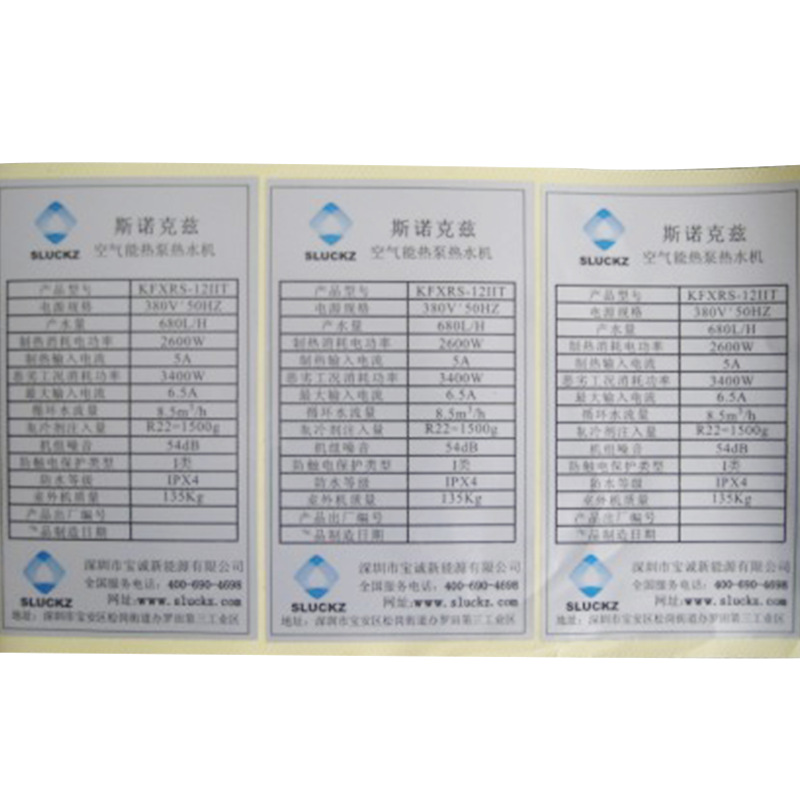 斯诺克兹
SLUCKZ 空气能热泵热水机
产品型号 KFXRS-12IIT
电源规格 380V 50HZ
产水量 680L/H
制热消耗电功率 2600W
制热输入电流 5A
恶劣工况消耗功率 3400W
最大输入电流 6.5A
循环水流量 8.5m³/h
制冷剂注入量 R22=1500g
机组噪音 54dB
防触电保护类型 I类
防水等级 IPX4
室外机质量 135Kg
产品出厂编号
产品制造日期
深圳市宝诚新能源有限公司
全国服务电话：400-690-4698
SLUCKZ 网址:www.sluckz.com
地址：深圳市宝安区松岗街道办罗田第三工业区
斯诺克兹
SLUCKZ 空气能热泵热水机
产品型号 KFXRS-12IIT
电源规格 380V 50HZ
产水量 680L/H
制热消耗电功率 2600W
制热输入电流 5A
恶劣工况消耗功率 3400W
最大输入电流 6.5A
循环水流量 8.5m³/h
制冷剂注入量 R22=1500g
机组噪音 54dB
防触电保护类型 I类
防水等级 IPX4
室外机质量 135Kg
产品出厂编号
产品制造日期
深圳市宝诚新能源有限公司
全国服务电话：400-690-4698
SLUCKZ 网址:www.sluckz.com
地址：深圳市宝安区松岗街道办罗田第三工业区
斯诺克兹
SLUCKZ 空气能热泵热水机
产品型号 KFXRS-12IIT
电源规格 380V 50HZ
产水量 680L/H
制热消耗电功率 2600W
制热输入电流 5A
恶劣工况消耗功率 3400W
最大输入电流 6.5A
循环水流量 8.5m³/h
制冷剂注入量 R22=1500g
机组噪音 54dB
防触电保护类型 I类
防水等级 IPX4
室外机质量 135Kg
产品出厂编号
产品制造日期
深圳市宝诚新能源有限公司
全国服务电话：400-690-4698
SLUCKZ 网址:www.sluckz.com
地址：深圳市宝安区松岗街道办罗田第三工业区